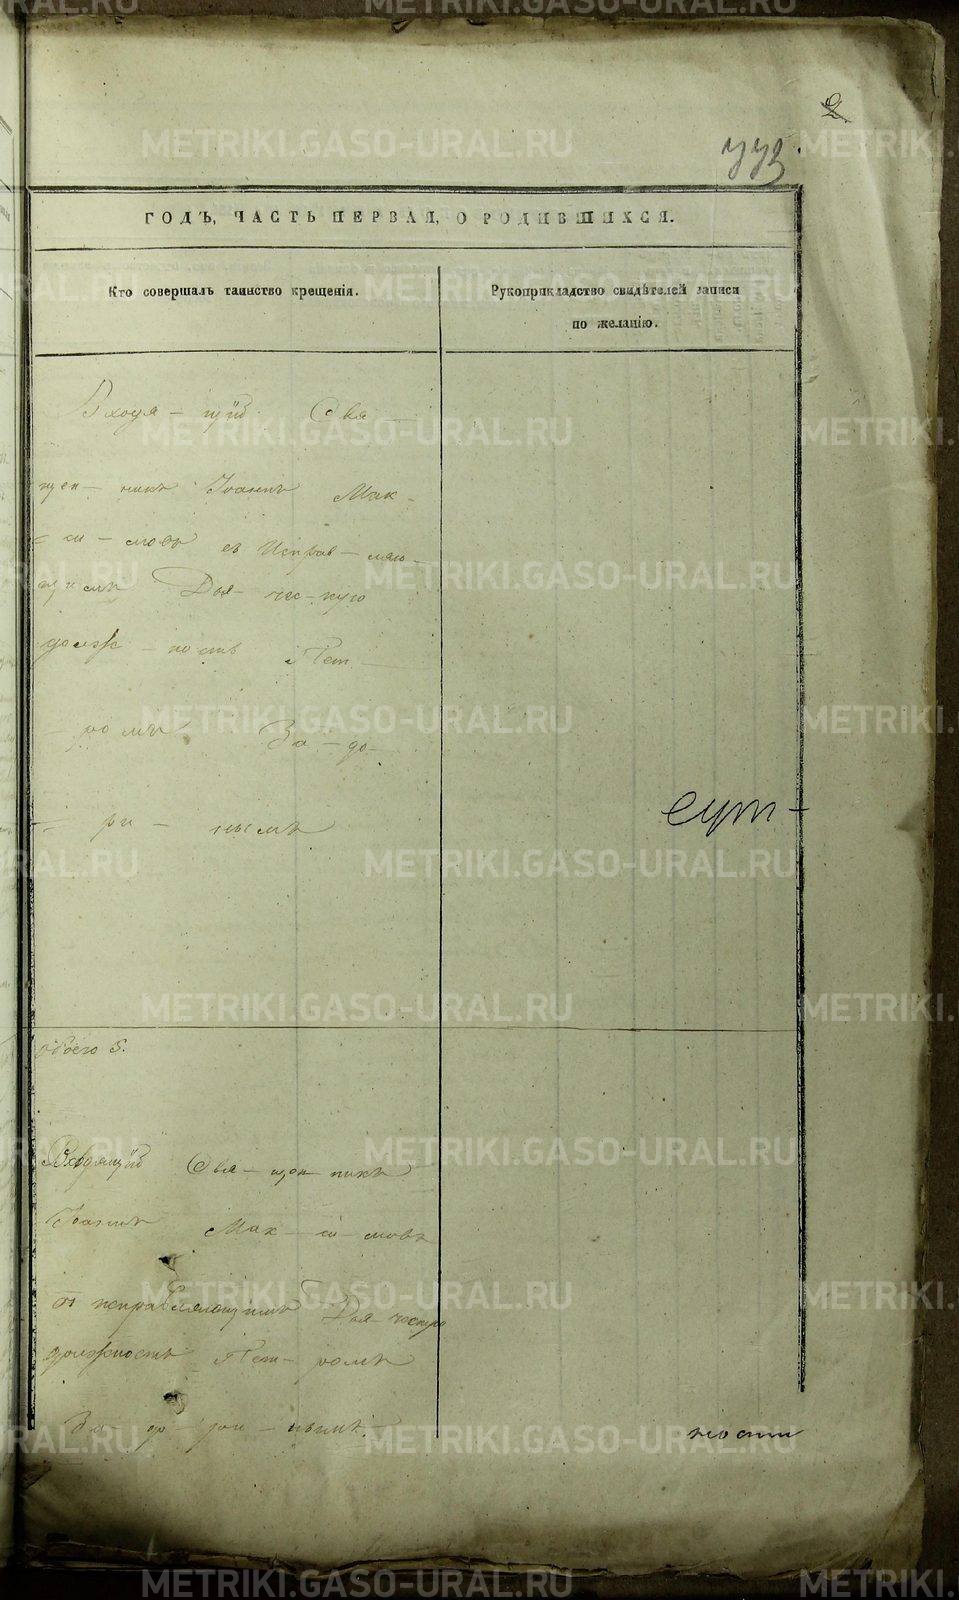 2
ГОДЪ, ЧАСТЬ ПЕРВАЯ, О РОДИВШИХСЯ.
Кто совершалъ таинство крещенія.
Рукоприкладство свидѣтелей записи
по желанію.
Входя – щій Свя –
щен – никъ Іоаннъ Мак –
– си – мовъ съ Исправ – ляю –
щимъ Дья – чес – кую
долж – ность Пет –
– ромъ За – до –
– ри – нымъ
сут –
обоего 5.
Входящій Свя – щен – никъ
Іоаннъ Мак – си – мовъ
съ исправляющимъ Дья – ческую
должность Пет – ромъ
За – до – ри – нымъ.
ности
METRIKI.GASO-URAL.RU